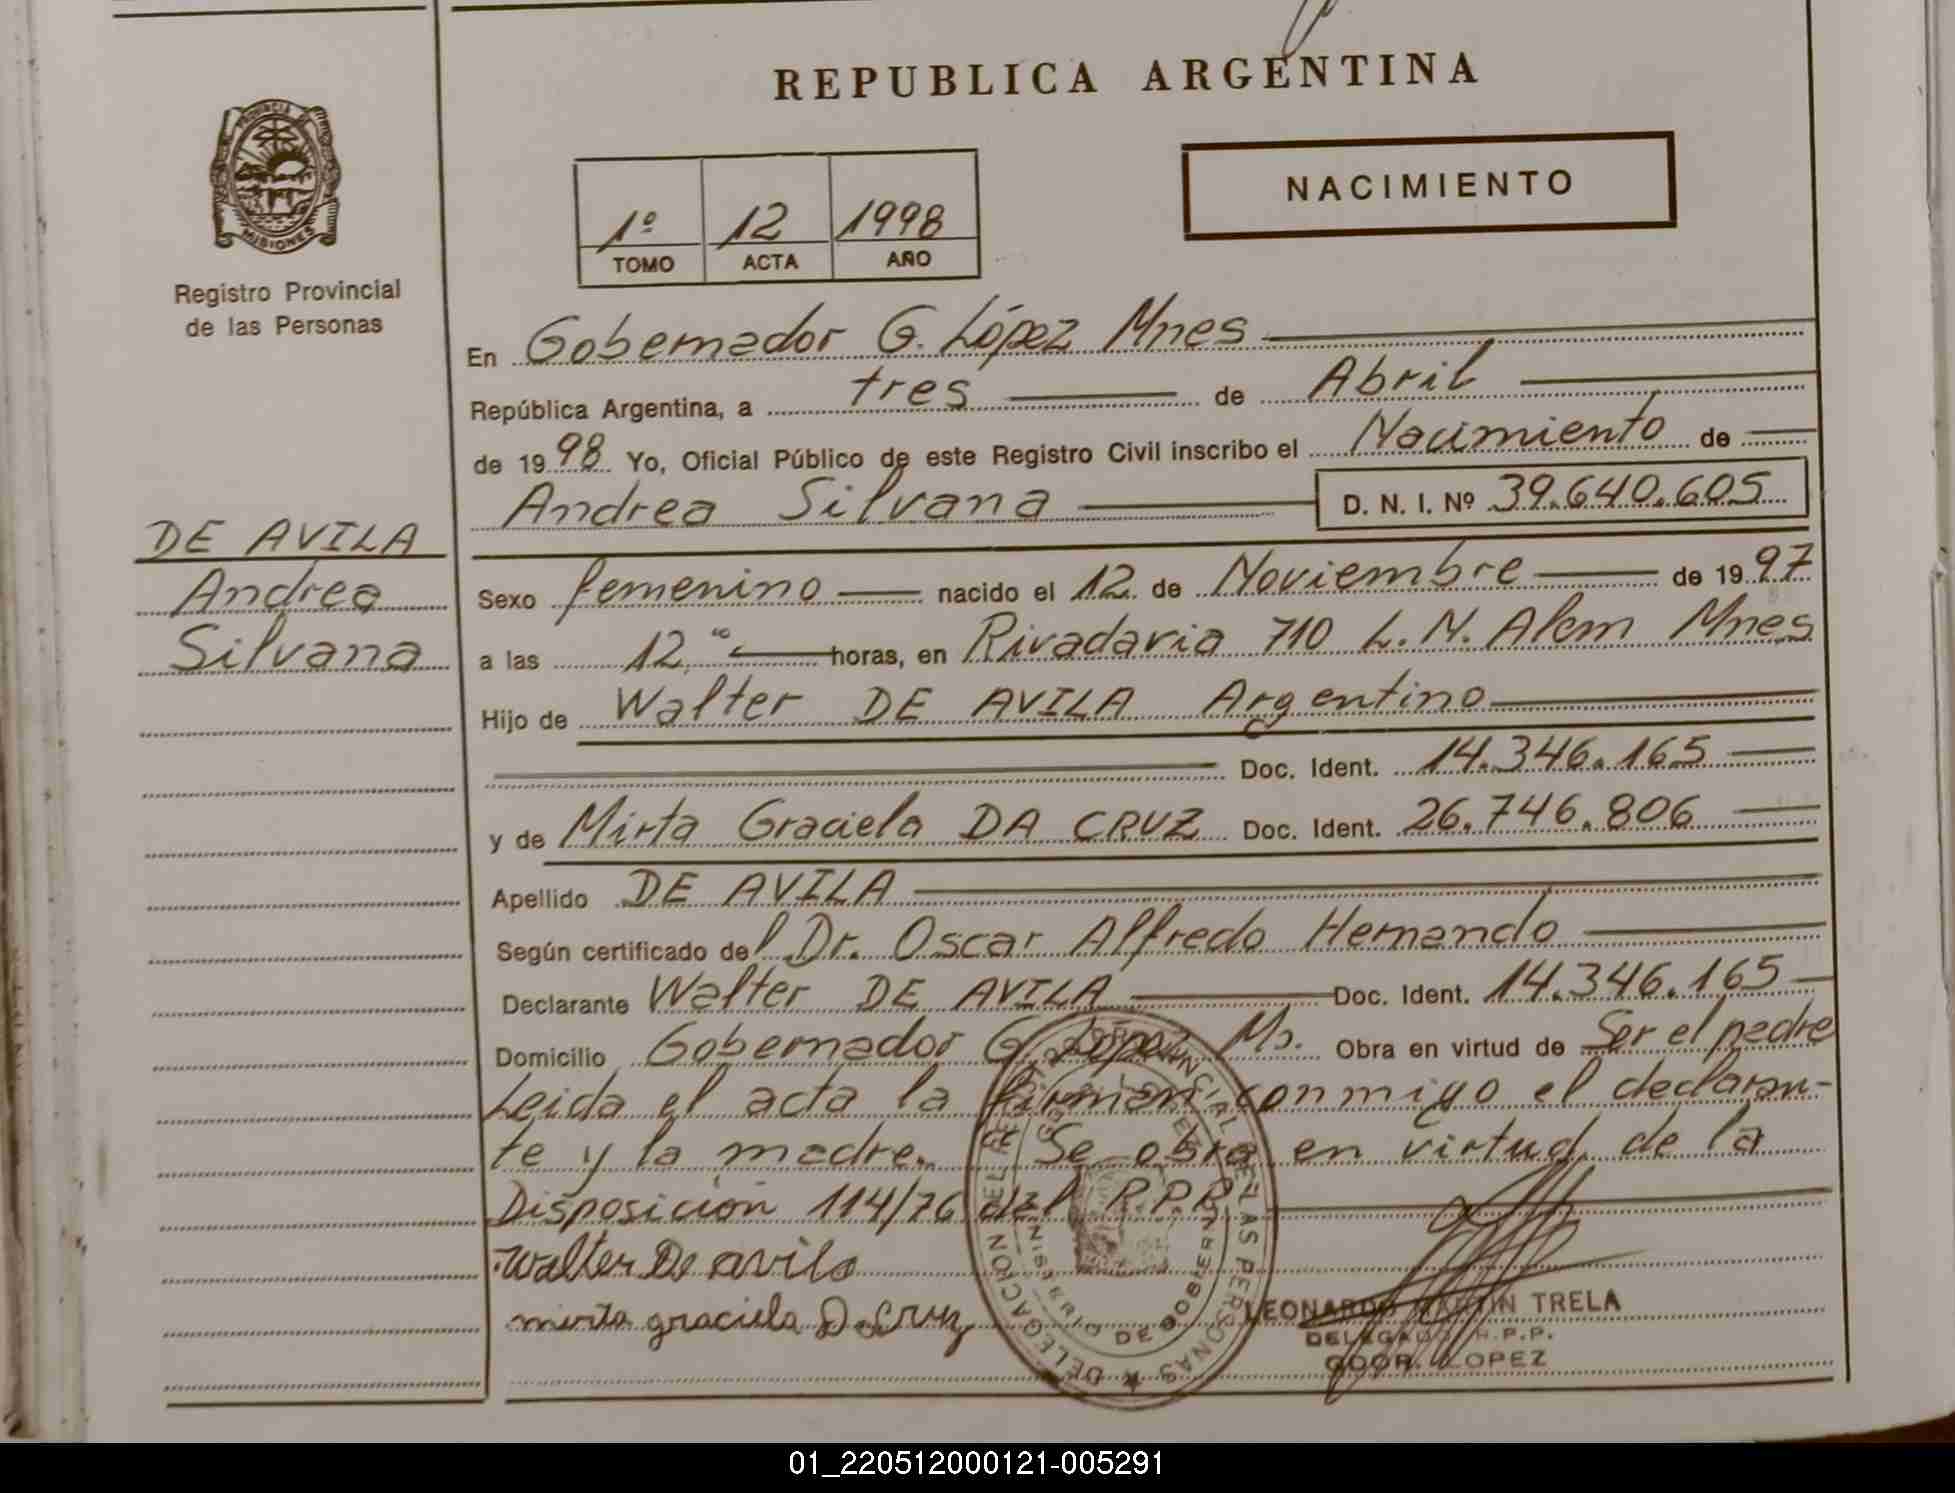 REPUBLICA ARGENTINA
PROVINCIA DE MISIONES
Registro Provincial
de las Personas
NACIMIENTO
1º 12 1998
TOMO ACTA AÑO
En Gobernador G. López Mnes
República Argentina, a tres de Abril
de 1998 Yo, Oficial Público de este Registro Civil inscribo el Nacimiento de
Andrea Silvana D. N. I. Nº 39.640.605
DE AVILA
Andrea
Silvana
Sexo femenino nacido el 12 de Noviembre de 1997
a las 12,ºº horas, en Rivadavia 710 L. N. Alem Mnes
Hijo de Walter DE AVILA Argentino
Doc. Ident. 14.346.165
y de Mirta Graciela DA CRUZ Doc. Ident. 26.746.806
Apellido DE AVILA
Según certificado del Dr. Oscar Alfredo Hernando
Declarante Walter DE AVILA Doc. Ident. 14.346.165
Domicilio Gobernador G. López Ms. Obra en virtud de Ser el padre
Leida el acta la firman conmigo el declaran-
te y la madre. Se obra en virtud de la
Disposición 114/76 del R.P.P.
Walter De avila
mirta graciela Da Cruz
DELEGACION DEL REGISTRO PROVINCIAL DE LAS PERSONAS
MINISTERIO DE GOBIERNO
LEONARDO MARTIN TRELA
DELEGADO R.P.P.
GDOR. LOPEZ
01_220512000121-005291